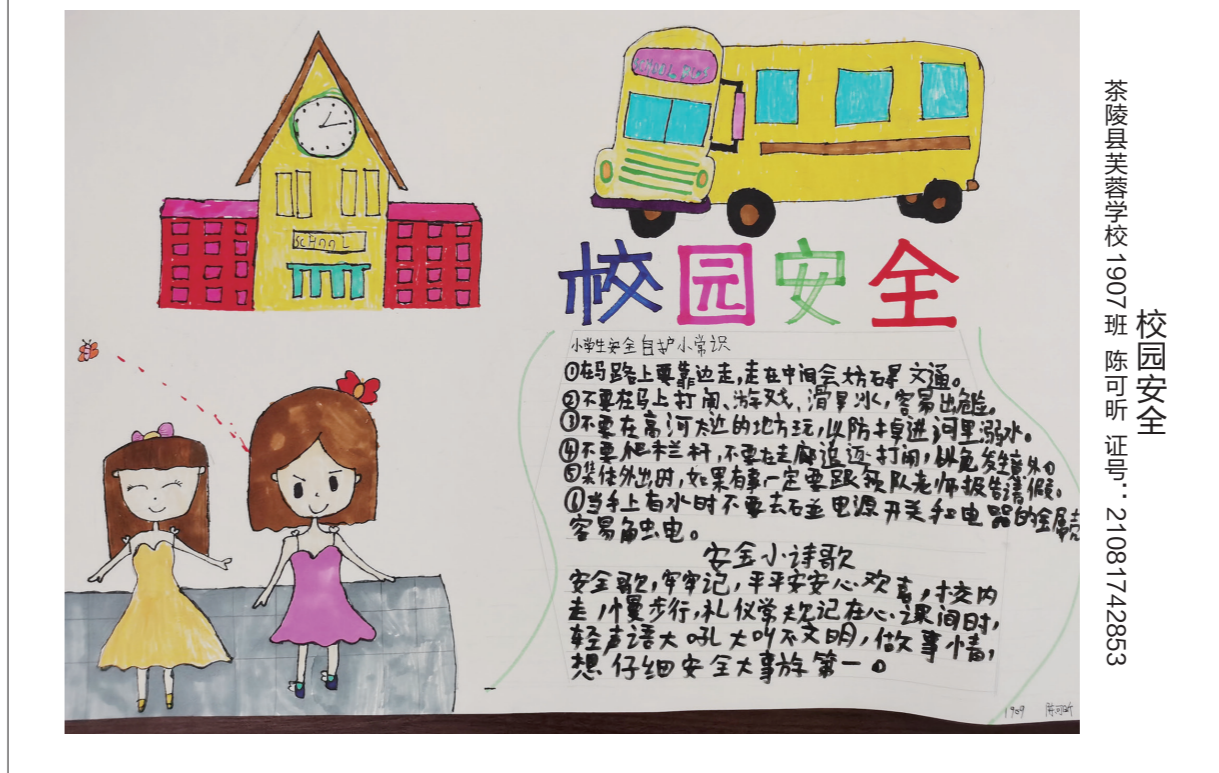 SCHOOL
SCHOOL BUS
校园安全
小学生安全自护小常识
①在马路上要靠边走,走在中间会妨碍交通。
②不要在马上打闹、游戏、滑旱冰,容易出危险。
③不要在高河太近的地方玩,以防掉进河里溺水。
④不要爬栏杆,不要在走廊追逐打闹,以免发生意外
⑤集体外出时,如果有事一定要跟领队老师报告请假。
⑥当手上有水时不要去碰电源开关和电器的金属壳
容易触电。
安全小诗歌
安全歌,牢牢记,平平安安心欢喜,校内
走慢步行,礼仪常规记在心.课间时,
轻声语大吼大叫不文明,做事情,
想仔细安全大事放第一。
1909 陈可昕
校园安全
茶陵县芙蓉学校 1907 班 陈可昕 证号：21081742853